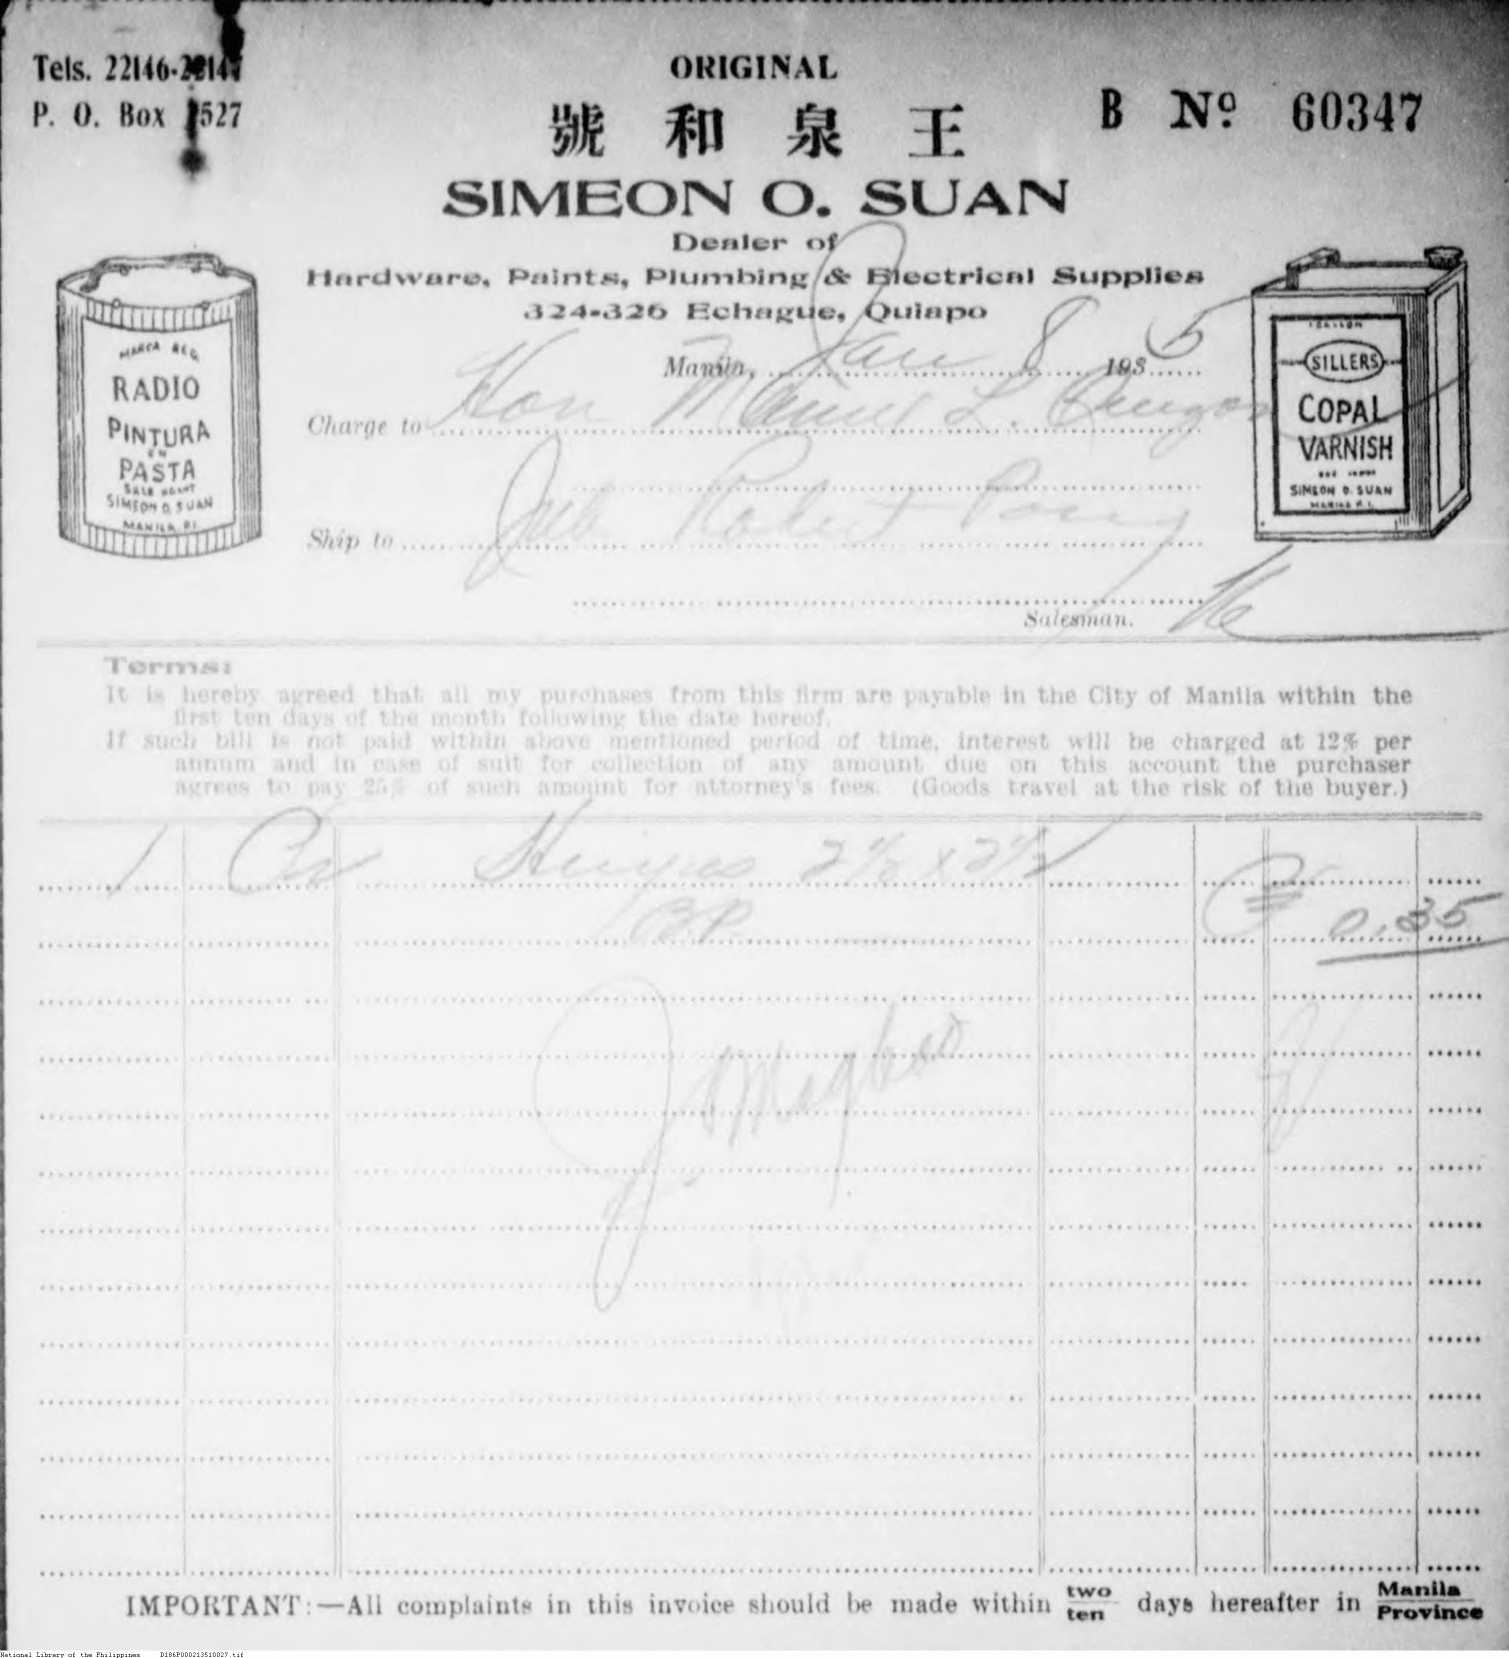 Tels. 22146-22147
P. O. Box 1527
ORIGINAL
B Nº 60347
號 和 泉 王
SIMEON O. SUAN
Dealer of
Hardware, Paints, Plumbing & Electrical Supplies
324-326 Echague, Quiapo
Manila, Jan 8 1935
Charge to Hon Manuel L. Quezon
Ship to
Salesman.
MARCA REG.
RADIO
PINTURA
EN
PASTA
SALE AGANT
SIMEON O. SUAN
MANILA P.I.
1 GALLON
SILLERS
COPAL
VARNISH
SIMEON O. SUAN
MANILA P. I.
Terms:
It is hereby agreed that all my purchases from this firm are payable in the City of Manila within the
first ten days of the month following the date hereof.
If such bill is not paid within above mentioned period of time, interest will be charged at 12% per
annum and in case of suit for collection of any amount due on this account the purchaser
agrees to pay 25% of such amount for attorney's fees. (Goods travel at the risk of the buyer.)
1 Pr Hinges 2½ x 2½
B.P. ₱ 0.35
IMPORTANT:—All complaints in this invoice should be made within two/ten days hereafter in Manila/Province
National Library of the Philippines D186P000213510027.tif